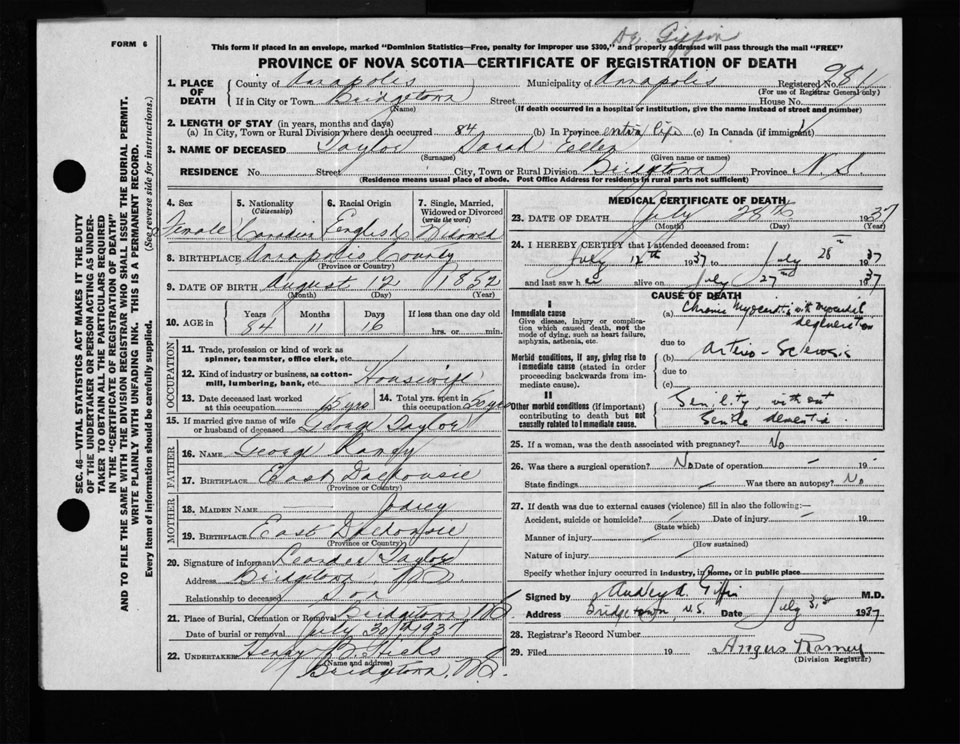 Dr. Giffin
FORM 6
This form if placed in an envelope, marked "Dominion Statistics—Free, penalty for improper use $300," and properly addressed will pass through the mail "FREE"
PROVINCE OF NOVA SCOTIA—CERTIFICATE OF REGISTRATION OF DEATH
1. PLACE OF DEATH County of Annapolis Municipality of Annapolis Registered No.
(For use of Registrar General only)
If in City or Town Bridgetown Street House No.
(Name) (If death occurred in a hospital or institution, give the name instead of street and number)
2. LENGTH OF STAY (in years, months and days)
(a) In City, Town or Rural Division where death occurred 84 (b) In Province entire life (c) In Canada (if immigrant)
3. NAME OF DECEASED Taylor Sarah Ellen
(Surname) (Given name or names)
RESIDENCE No. Street City, Town or Rural Division Bridgetown Province N.S.
(Residence means usual place of abode. Post Office Address for residents in rural parts not sufficient)
4. Sex 5. Nationality (Citizenship) 6. Racial Origin 7. Single, Married, Widowed or Divorced (write the word)
Female Canadian English Widowed
8. BIRTHPLACE Annapolis County
(Province or Country)
9. DATE OF BIRTH August 12 1852
(Month) (Day) (Year)
10. AGE in Years Months Days If less than one day old
84 11 16 hrs. or min.
OCCUPATION
11. Trade, profession or kind of work as spinner, teamster, office clerk, etc.
12. Kind of industry or business, as cotton-mill, lumbering, bank, etc. Housewife
13. Date deceased last worked at this occupation 15 yrs 14. Total yrs. spent in this occupation 50 yrs
15. If married give name of wife or husband of deceased George Taylor
FATHER
16. NAME George
17. BIRTHPLACE East Dalhousie
(Province or Country)
MOTHER
18. MAIDEN NAME
19. BIRTHPLACE East Dalhousie
(Province or Country)
20. Signature of informant Leander Taylor
Address Bridgetown, N.S.
Relationship to deceased Son
21. Place of Burial, Cremation or Removal Bridgetown N.S.
Date of burial or removal July 30th 1937
22. UNDERTAKER Henry B. Hicks
(Name and address)
Bridgetown, N.S.
MEDICAL CERTIFICATE OF DEATH
23. DATE OF DEATH July 28th 1937
(Month) (Day) (Year)
24. I HEREBY CERTIFY that I attended deceased from:
July 12th 1937 to July 28th 1937
and last saw her alive on July 27th 1937
CAUSE OF DEATH
I
Immediate cause (a) Chronic Myocarditis with myocardial degeneration
Give disease, injury or complication which caused death, not the mode of dying, such as heart failure, asphyxia, asthenia, etc.
due to
Morbid conditions, if any, giving rise to immediate cause (stated in order proceeding backwards from immediate cause).
(b) Arterio-Sclerosis
due to
(c)
II
Other morbid conditions (if important) contributing to death but not causally related to immediate cause.
Senility without
Senile dementia
25. If a woman, was the death associated with pregnancy? No
26. Was there a surgical operation? No Date of operation — 19 -
State findings — Was there an autopsy? No
27. If death was due to external causes (violence) fill in also the following:—
Accident, suicide or homicide? — Date of injury — 19
(State which)
Manner of injury —
(How sustained)
Nature of injury —
Specify whether injury occurred in industry, in home, or in public place
Signed by Audley A. Giffin M.D.
Address Bridgetown, N.S. Date July 1937
28. Registrar's Record Number
29. Filed 19 Angus Ramey
(Division Registrar)
SEC. 46—VITAL STATISTICS ACT MAKES IT THE DUTY
OF THE UNDERTAKER OR PERSON ACTING AS UNDER-
TAKER TO OBTAIN ALL THE PARTICULARS REQUIRED
IN THE "CERTIFICATE OF REGISTRATION OF DEATH"
AND TO FILE THE SAME WITH THE DIVISION REGISTRAR WHO SHALL ISSUE THE BURIAL PERMIT.
WRITE PLAINLY WITH UNFADING INK. THIS IS A PERMANENT RECORD.
Every item of information should be carefully supplied. (See reverse side for instructions.)